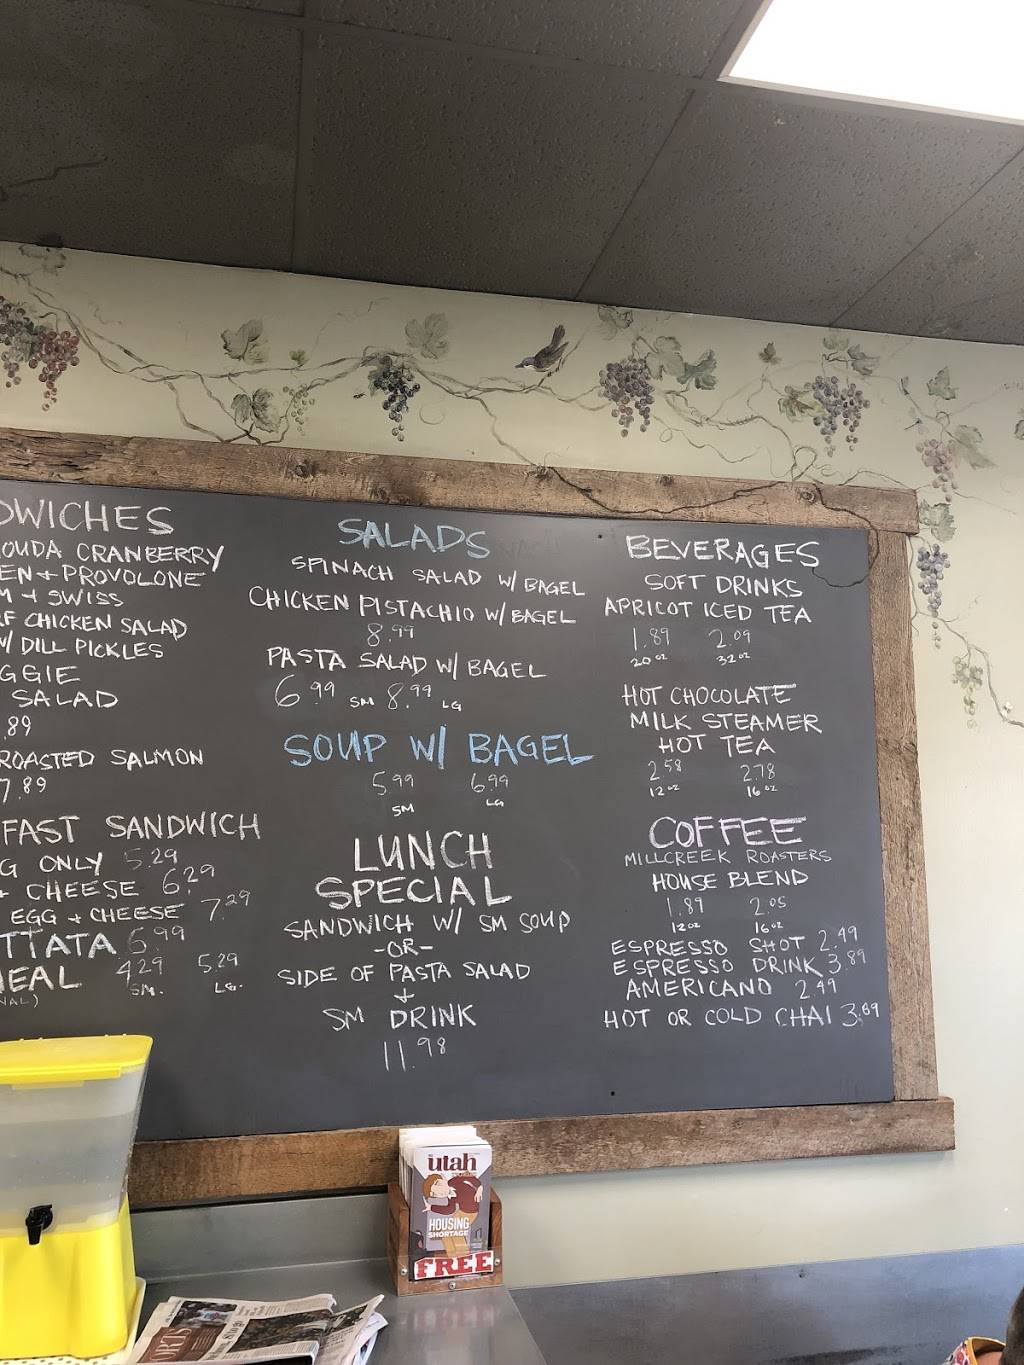 DWICHES
OUDA CRANBERRY
EN + PROVOLONE
M + SWISS
RF CHICKEN SALAD
W/ DILL PICKLES
GGIE
SALAD
.89
ROASTED SALMON
7.89
FAST SANDWICH
G ONLY 5.29
+ CHEESE 6.29
EGG + CHEESE 7.29
TTATA 6.99
MEAL 4.29 5.29
NAL) SM. LG.
SALADS
SPINACH SALAD W/ BAGEL
CHICKEN PISTACHIO W/ BAGEL
8.99
PASTA SALAD W/ BAGEL
6.99 SM 8.99 LG
SOUP W/ BAGEL
5.99 6.99
SM LG
LUNCH
SPECIAL
SANDWICH W/ SM SOUP
-OR-
SIDE OF PASTA SALAD
+
SM DRINK
11.98
BEVERAGES
SOFT DRINKS
APRICOT ICED TEA
1.89 2.09
20 oz 32 oz
HOT CHOCOLATE
MILK STEAMER
HOT TEA
2.58 2.78
12 oz 16 oz
COFFEE
MILLCREEK ROASTERS
HOUSE BLEND
1.89 2.05
12 oz 16 oz
ESPRESSO SHOT 2.49
ESPRESSO DRINK 3.89
AMERICANO 2.49
HOT OR COLD CHAI 3.69
utah
HOUSING
SHORTAGE
FREE